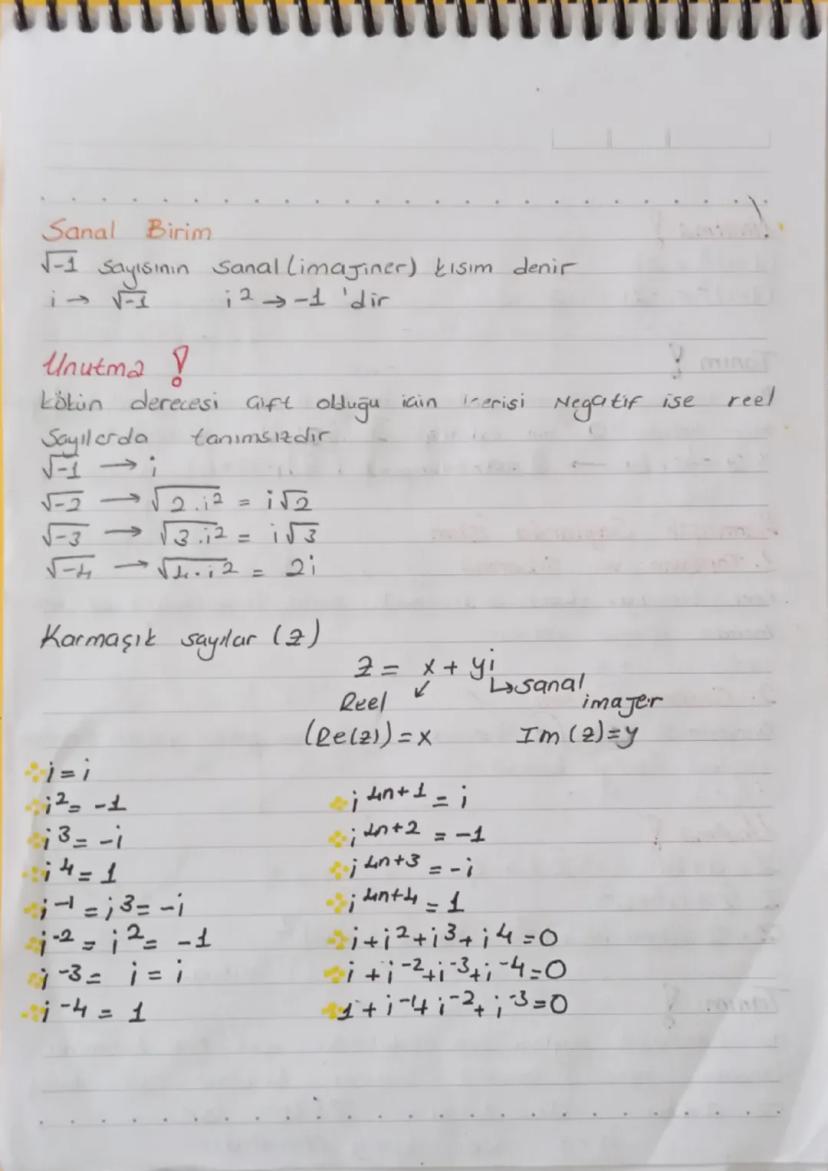 Sanal Birim
√-1 sayısının sanal (imajiner) kısım denir
i → √-1 i² → -1 'dir
Unutma !
kökün derecesi çift olduğu için içerisi Negatif ise reel
Sayılarda tanımsızdır
√-1 → i
√-2 → √2.i² = i√2
√-3 → √3.i² = i√3
√-4 → √4.i² = 2i
Karmaşık sayılar (z)
z = x + yi
Reel ↙ ↳sanal
imajer
(Re(z)) = x Im(z)=y
i = i
i² = -1 i⁴ⁿ⁺¹ = i
i³ = -i i⁴ⁿ⁺² = -1
i⁴ = 1 i⁴ⁿ⁺³ = -i
i⁻¹ = i³ = -i i⁴ⁿ⁺⁴ = 1
i⁻² = i² = -1 i+i²+i³+i⁴=0
i⁻³ = i = i i+i⁻²+i⁻³+i⁻⁴=0
i⁻⁴ = 1 1+i⁻⁴i⁻²+i⁻³=0